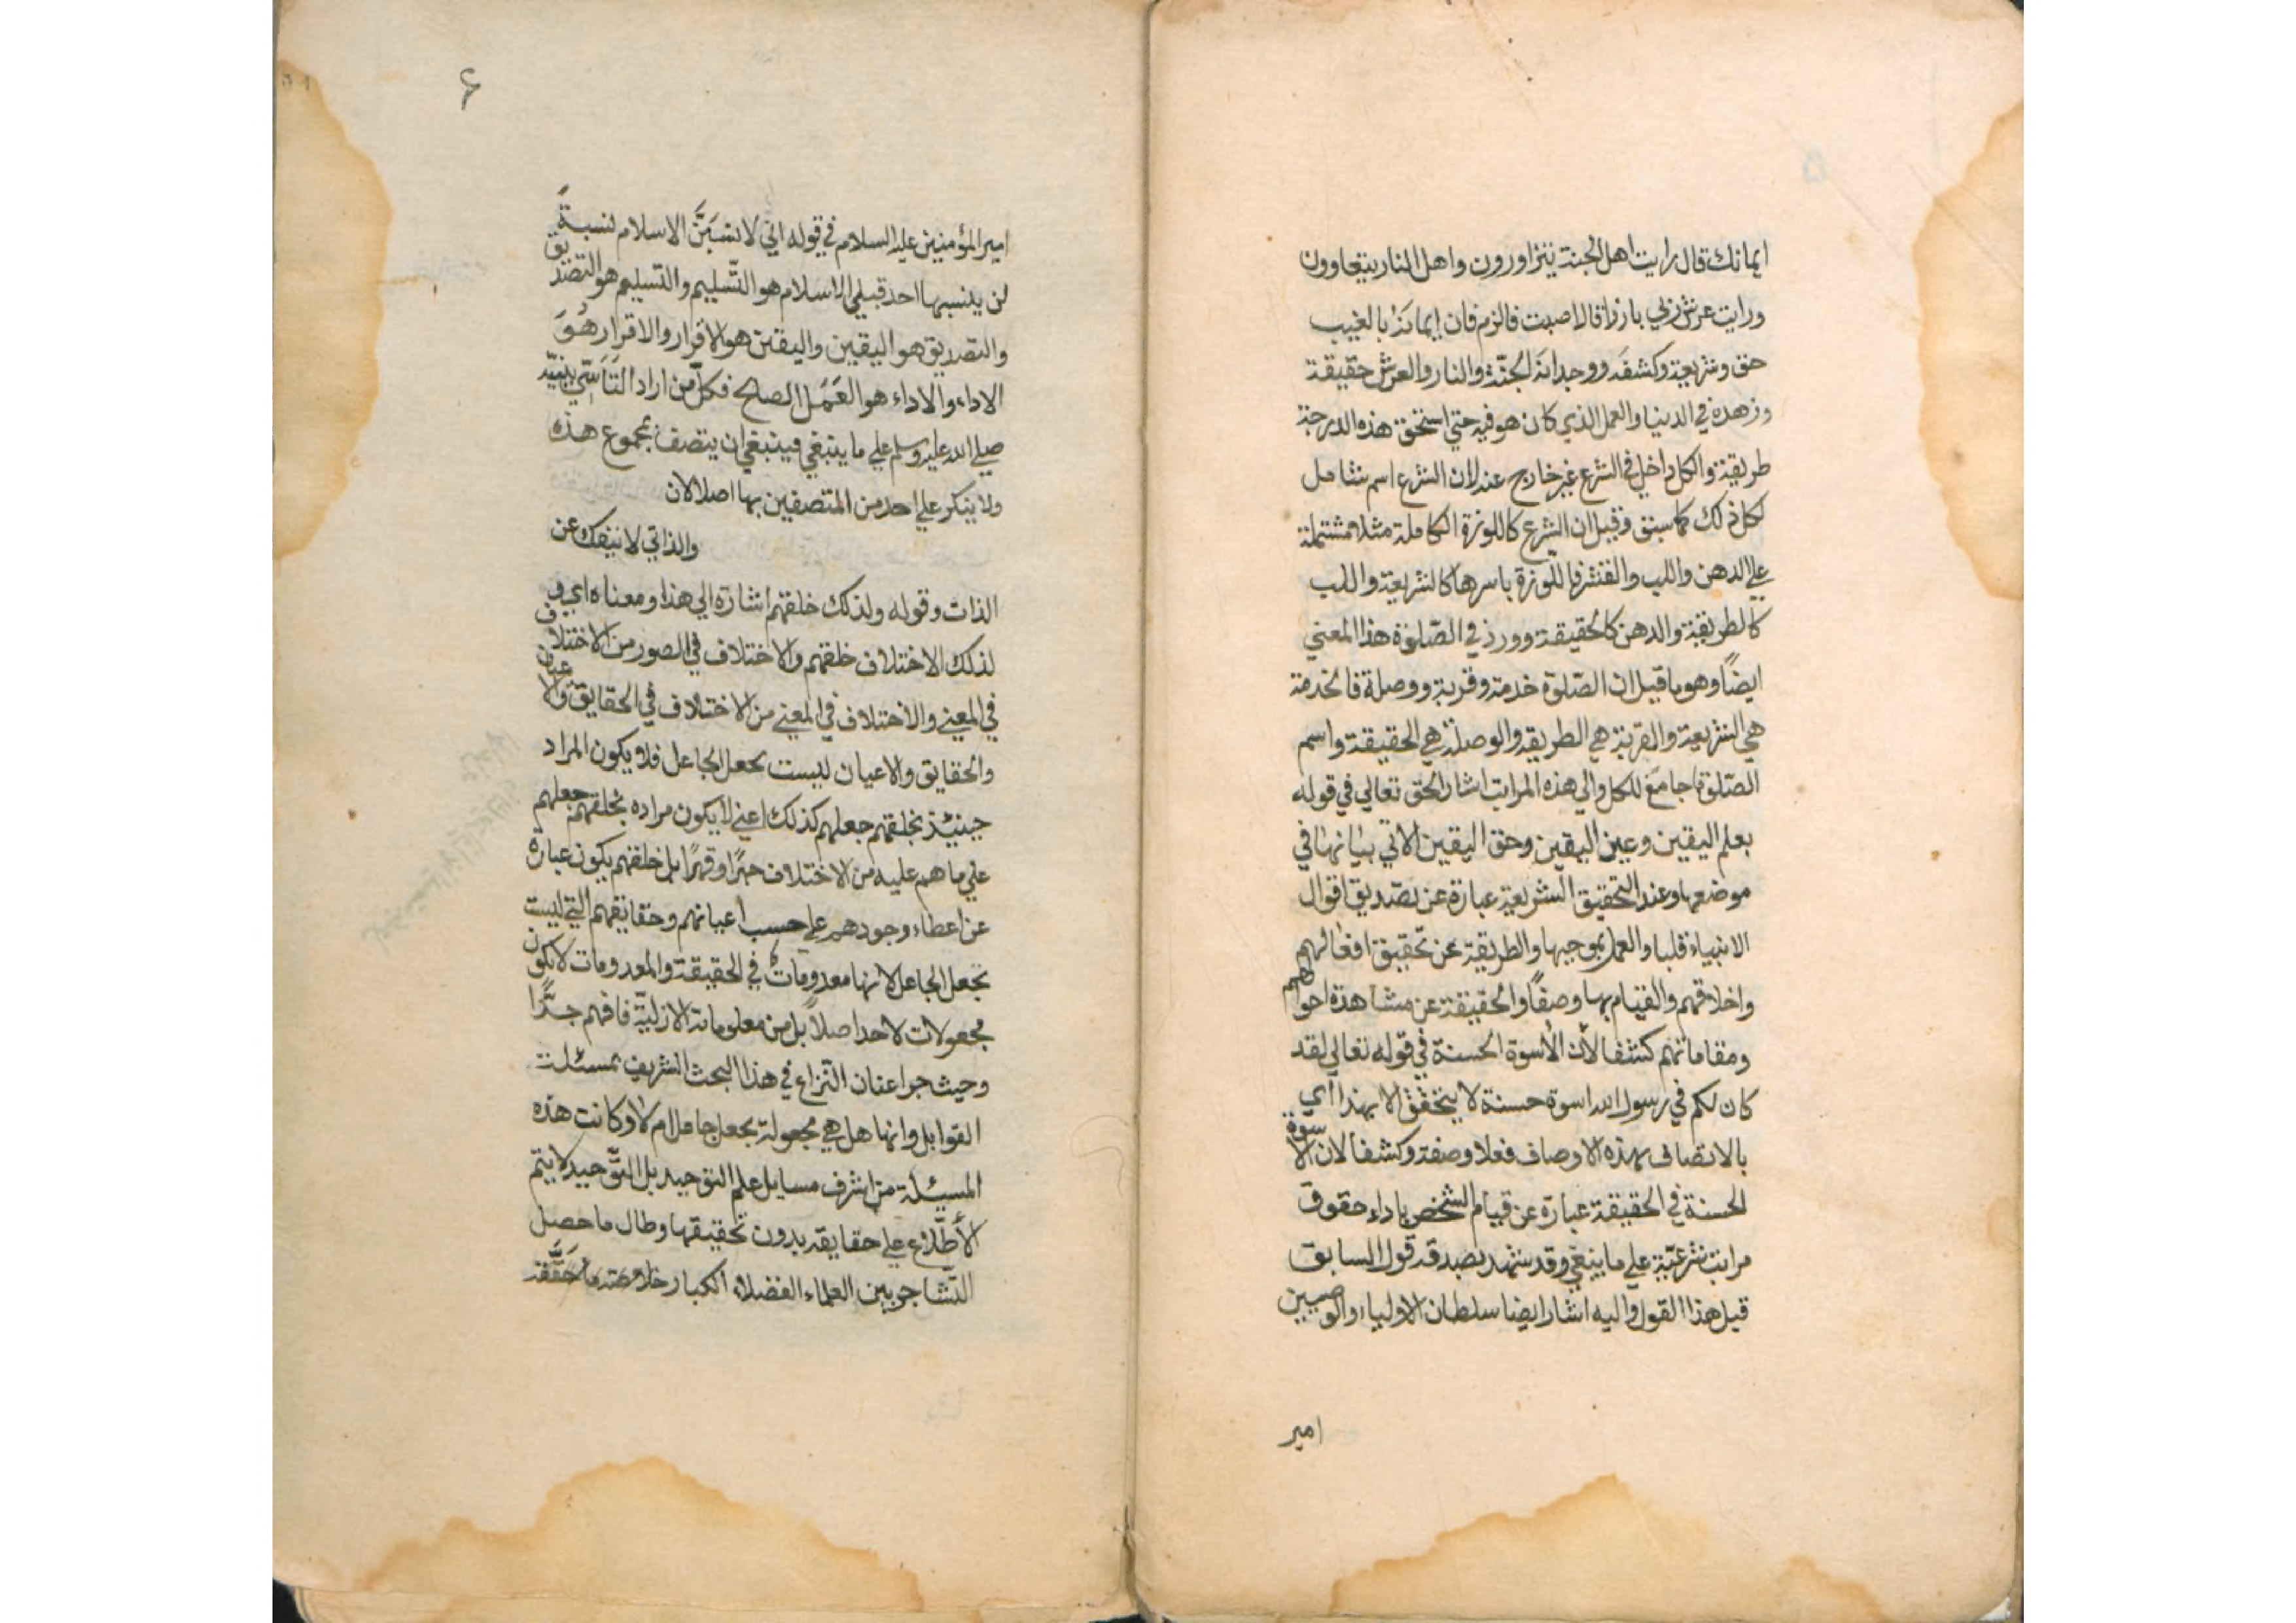 ايمانك قال رايت اهل الجنة يتزاورون واهل النار يتغاوون
ورايت عرش ربي بارزا قال اصبت فالزم فان إيمانه بالغيب
حق وشريعة وكشفه ووجدانه الجنة والنار والعرش حقيقة
وزهده في الدنيا والعمل الذي كان هو فيه حتي استحق هذه الدرجة
طريقة والكل داخل في الشرع غير خارج عنه لان الشرع اسم شامل
لكل ذلك كما سبق وقيل ان الشرع كاللوزة الكاملة مثلا مشتملة
علي الدهن واللب والقشر فاللوزة باسرها كالشريعة واللب
كالطريقة والدهن كالحقيقة وورد في الصّلوة هذا المعني
ايضاً وهو ما قيل ان الصّلوة خدمة وقربة ووصلة فالخدمة
هي الشريعة والقربة هي الطريقه والوصلة هي الحقيقة واسم
الصّلوة جامع للكل والي هذه المراتب اشار الحق تعالي في قوله
بعلم اليقين وعين اليقين وحق اليقين الاتي بيانها في
موضعها وعند التحقيق الشريعة عبارة عن تصديق اقوال
الانبياء قلبا والعمل بموجبها والطريقة عن تحقيق افعالهم
واخلاقهم والقيام بها وصفاً والحقيقة عن مشاهدة احوالهم
ومقاماتهم كشفا لأن الأسوة الحسنة في قوله تعالي لقد
كان لكم في رسول الله اسوة حسنة لا يتحقق الا بهذا اي
بالاتصاف بهذه الاوصاف فعلا وصفة وكشفا لان الاسوة
الحسنة في الحقيقة عبارة عن قيام الشخص باداء حقوق
مراتب شرعيّة علي ما ينبغي وقد شهد بصدقه قول السابق
قيل هذا القول واليه اشار ايضا سلطان الاولياء والوصيين
امير
۶
امير المؤمنين عليه السلام في قوله اني لانسبَنَّ الاسلام نسبةً
لن ينسبها احد قبلي الاسلام هو التّسليم والتسليم هو التصديق
والتصديق هو اليقين واليقين هو الاقرار والاقرار هُوَ
الاداء والاداء هو العَمَل الصالح فكل من اراد التَأسّي بنبيّه
صلي الله عليه وسلم علي ما ينبغي فينبغي ان يتصف بمجموع هذه
ولا ينكر علي احد من المتصفين بها اصلا لان
والذاتي لا ينفك عن
الذات وقوله ولذلك خلقهم اشارة الي هذا ومعناه اي و
لذلك الاختلاف خلقهم والاختلاف في الصور من الاختلاف
في المعني والاختلاف في المعني من الاختلاف في الحقايق والاعيان
والحقايق والاعيان ليست بجعل الجاعل فلا يكون المراد
حينئذ بخلقهم جعلهم كذلك اعني لا يكون مراده بخلقهم جعلهم
علي ما هم عليه من الاختلاف جبرًا وقهرًا بل خلقهم يكون عبارة
عن اعطاء وجودهم علي حسب اعيانهم وحقائقهم التي ليست
بجعل الجاعل لانها معدومات في الحقيقة والمعدومات لا تكون
مجعولات لاحد اصلاً بل من معلوماته الازليّة فافهم جدًّا
وحيث جرا عنان النّزاع في هذا البحث الشريف بمسئلة
القوابل وانها هل هي مجعولة بجعل جاعل ام لا وكانت هذه
المسئلة من اشرف مسايل علم التوحيد بل التّوحيد لا يتم
الأطّلاع علي حقايقه بدون تحقيقها وطال ما حصل
التّشاجر بين العلماء الفضلاء الكبار